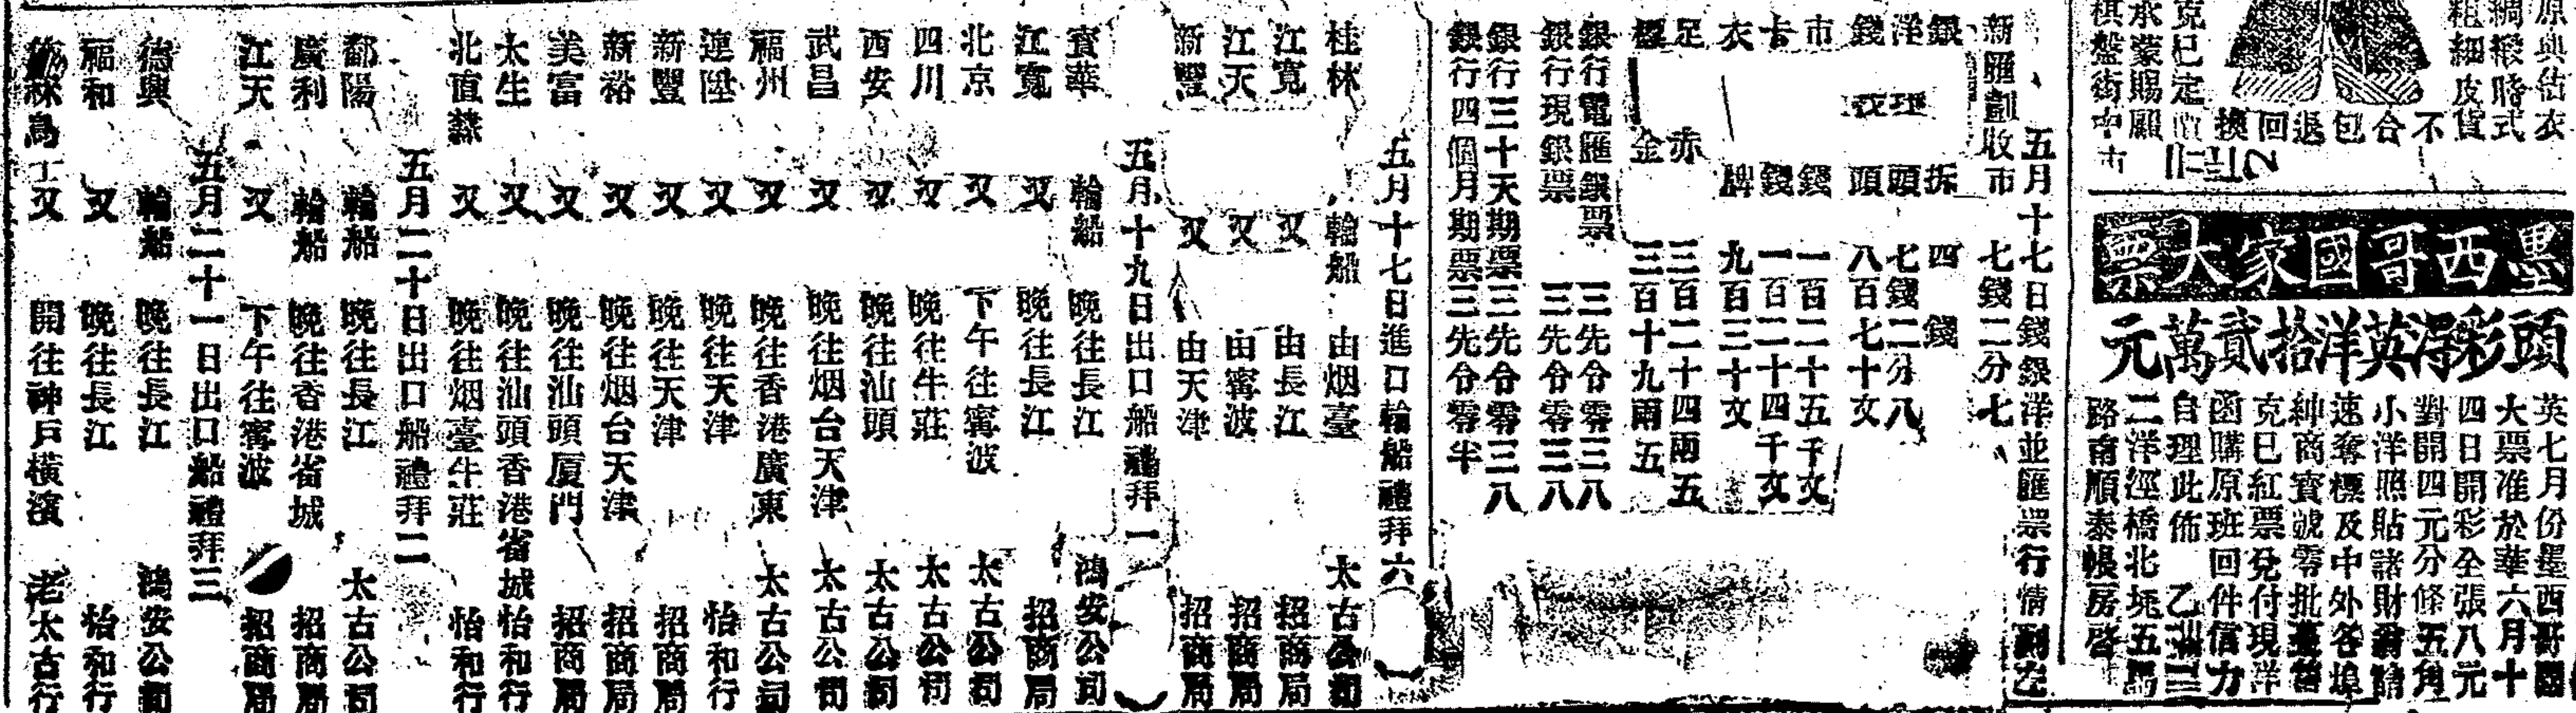 原興估衣
綢緞時式
粗細皮貨
不合包退回換
克已定價
承蒙賜顧
棋盤街中市
墨西哥國家大票
頭彩淂英洋拾貳萬元
英七月份墨西哥國
大票准於華六月十
四日開彩全張八元
對開四元分條五角
小洋照貼諸財翁請
速奪標及中外各埠
紳商賓號零批躉售
克已紅票兌付現洋
函購原班回件信力
自理此佈
二洋涇橋北堍五馬
路南順泰帳房啓
五月十七日錢銀洋並匯票行情列左
新匯劃收市 七錢二分七
銀拆 四錢
洋 頭 七錢二分八
錢 頭 八百七十文
市錢 一百二十五千文
卡錢 一百二十四千文
衣牌 九百三十文
足赤 三百二十四兩五
標金 三百十九兩五
銀行電匯銀票 三先令零三八
銀行現銀票 三先令零三八
銀行三十天期票三先令零三八
銀行四個月期票三先令零半
五月十七日進口輪船禮拜六
桂林 輪船 由烟臺 太古公司
江寬 又 由長江 招商局
江天 又 由寗波 招商局
新豐 又 由天津 招商局
五月十九日出口船禮拜一
寳華 輪船 晚往長江 鴻安公司
江寬 又 晚往長江 招商局
北京 又 下午往寗波 太古公司
四川 又 晚往牛莊 太古公司
西安 又 晚往汕頭 太古公司
武昌 又 晚往烟台天津 太古公司
福州 又 晚往香港廣東 太古公司
連陞 又 晚往天津 怡和行
新豐 又 晚往天津 招商局
新裕 又 晚往烟台天津 招商局
美富 又 晚往汕頭厦門 招商局
太生 又 晚往汕頭香港省城 怡和行
北直隸 又 晚往烟臺牛莊 怡和行
五月二十日出口船禮拜二
鄱陽 輪船 晚往長江 太古公司
廣利 輪船 晚往香港省城 招商局
江天 又 下午往寗波 招商局
五月二十一日出口船禮拜三
德興 輪船 晚往長江 鴻安公司
福和 又 晚往長江 怡和行
又 開往神戶橫濱 老太古行